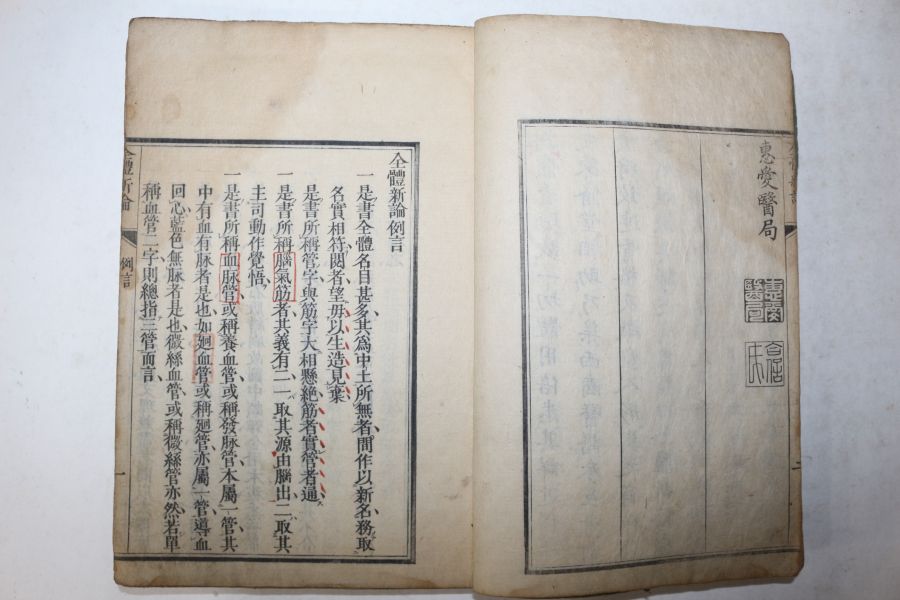 惠愛醫局
全體新論例言
一是書全體名目甚多其爲中土所無者間作以新名務取
名實相符閱者望毋以生造見棄
一是書所稱管字與筋字大相懸絕筋者實管者通
一是書所稱腦氣筋者其義有二一取其源由腦出二取其
主司動作覺悟
一是書所稱血脉管或稱養血管或稱發脉管本屬一管其
中有血有脉者是也如廻血管或稱廻管亦屬一管導血
回心藍色無脉者是也微絲血管或稱微絲管亦然若單
稱血管二字則總指三管而言
全體新論
例言
一